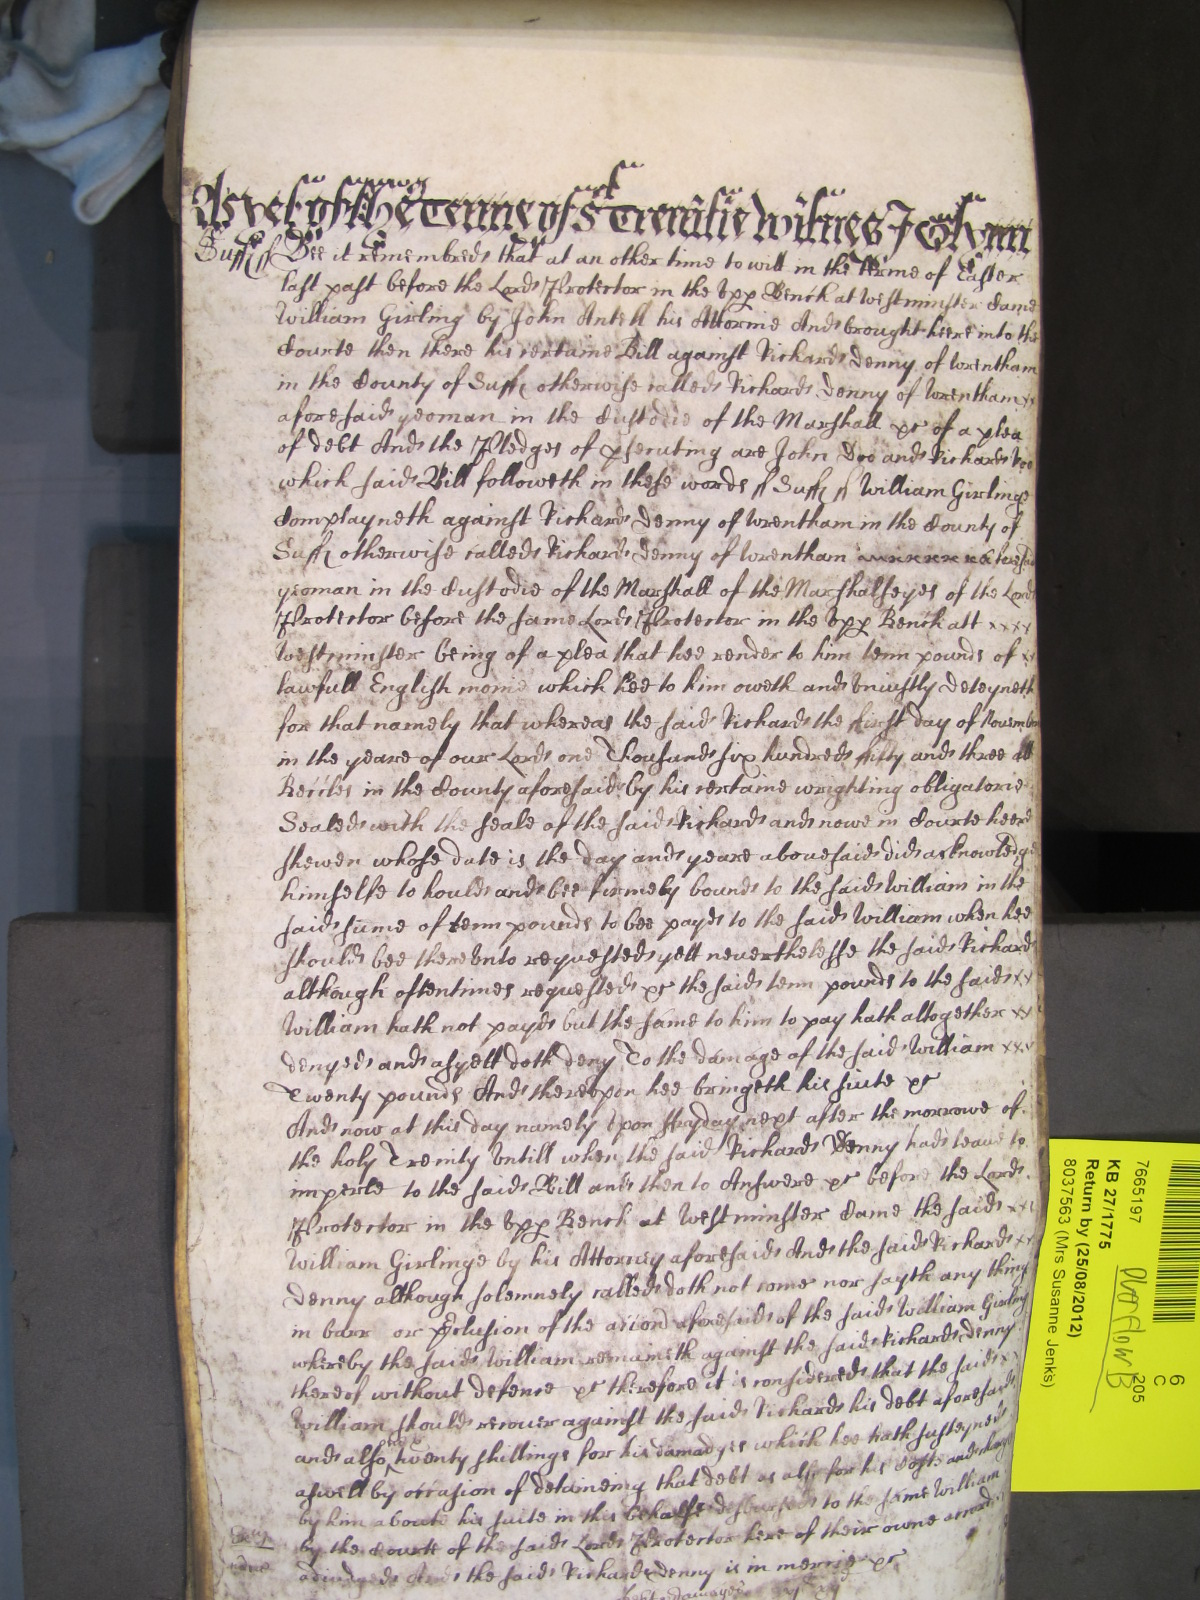 As yet of the Terme of St Trenitie Witnes J Glynn
Suff ss Bee it remembred that at an other time to witt in the Terme of Easter
last past before the Lord Protector in the Upp Bench at Westminster Came
William Girling by John Antell his Attornie And brought heere into the
Courte then there his certaine Bill against Richard Denny of Wrentham
in the County of Suff otherwise called Richard Denny of Wrentham xx
aforesaid yeoman in the Custodie of the Marshall &c of a plea
of debt And the Pledges of pssecuting are John Doo and Richard Roo
which said Bill followeth in these words ss Suff ss William Girlinge
Complayneth against Richard Denny of Wrentham in the County of
Suff otherwise called Richard Denny of Wrentham aforesaid
yeoman in the Custodie of the Marshall of the Marshalseyes of the Lord
Protector before the same Lord Protector in the Upp Bench att xxxx
Westminster being of a plea that hee render to him tenn pounds of xx
lawfull English monie which hee to him oweth and uniustly deteyneth
for that namely that whereas the said Richard the first day of November
in the yeare of our Lord one Thousand six hundred fifty and three att
Beccles in the County aforesaid by his certaine wrighting obligatorie
Sealed with the seale of the said Richard and nowe in Courte heere
shewen whose date is the day and yeare abovesaid did acknowledge
himselfe to hould and bee firmely bound to the said William in the
said sume of tenn pounds to bee payd to the said William when hee
should bee thereunto requested yett neverthelesse the said Richard
although oftentimes requested &c the said tenn pounds to the said xx
William hath not payd but the same to him to pay hath altogether xx
denyed and as yett doth deny To the damage of the said William xxx
Twenty pounds And thereupon hee bringeth his suite &c
And now at this day namely Upon Fryday next after the morrowe of
the holy Trenity Untill when the said Richard Denny had leave to
imperle to the said Bill and then to Answere &c before the Lord
Protector in the Upp Bench at Westminster Came the said xxx
William Girlinge by his Attorney aforesaid And the said Richard xx
Denny although solemnely called doth not come nor sayth any thing
in barr or pclusion of the accion aforesaid of the said William Girling
whereby the said William remaineth against the said Richard Denny
thereof without defence &c therefore it is considered that the said xx
William should recover against the said Richard his debt aforesaid
and also twenty shillings for his damadges which hee hath susteyned
aswell by occasion of detaineing that debt as also for his Costs and charges
by him aboute his suite in this behalfe desbursed to the same William
by the Courte of the said Lord Protector here of their owne assent
adiudged And the said Richard Denny is in mercie &c
7665197
KB 27/1775
Return by (25/08/2012)
8037563 (Mrs Susanne Jenks)
Overflow B
205
C
6